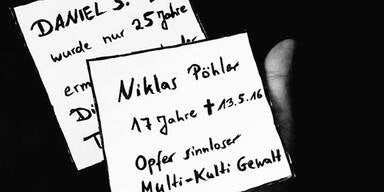 DANIEL S.
wurde nur 25 Jahre
Niklas Pöhler
17 Jahre ✝ 13.5.16
Opfer sinnloser
Multi-Kulti Gewalt